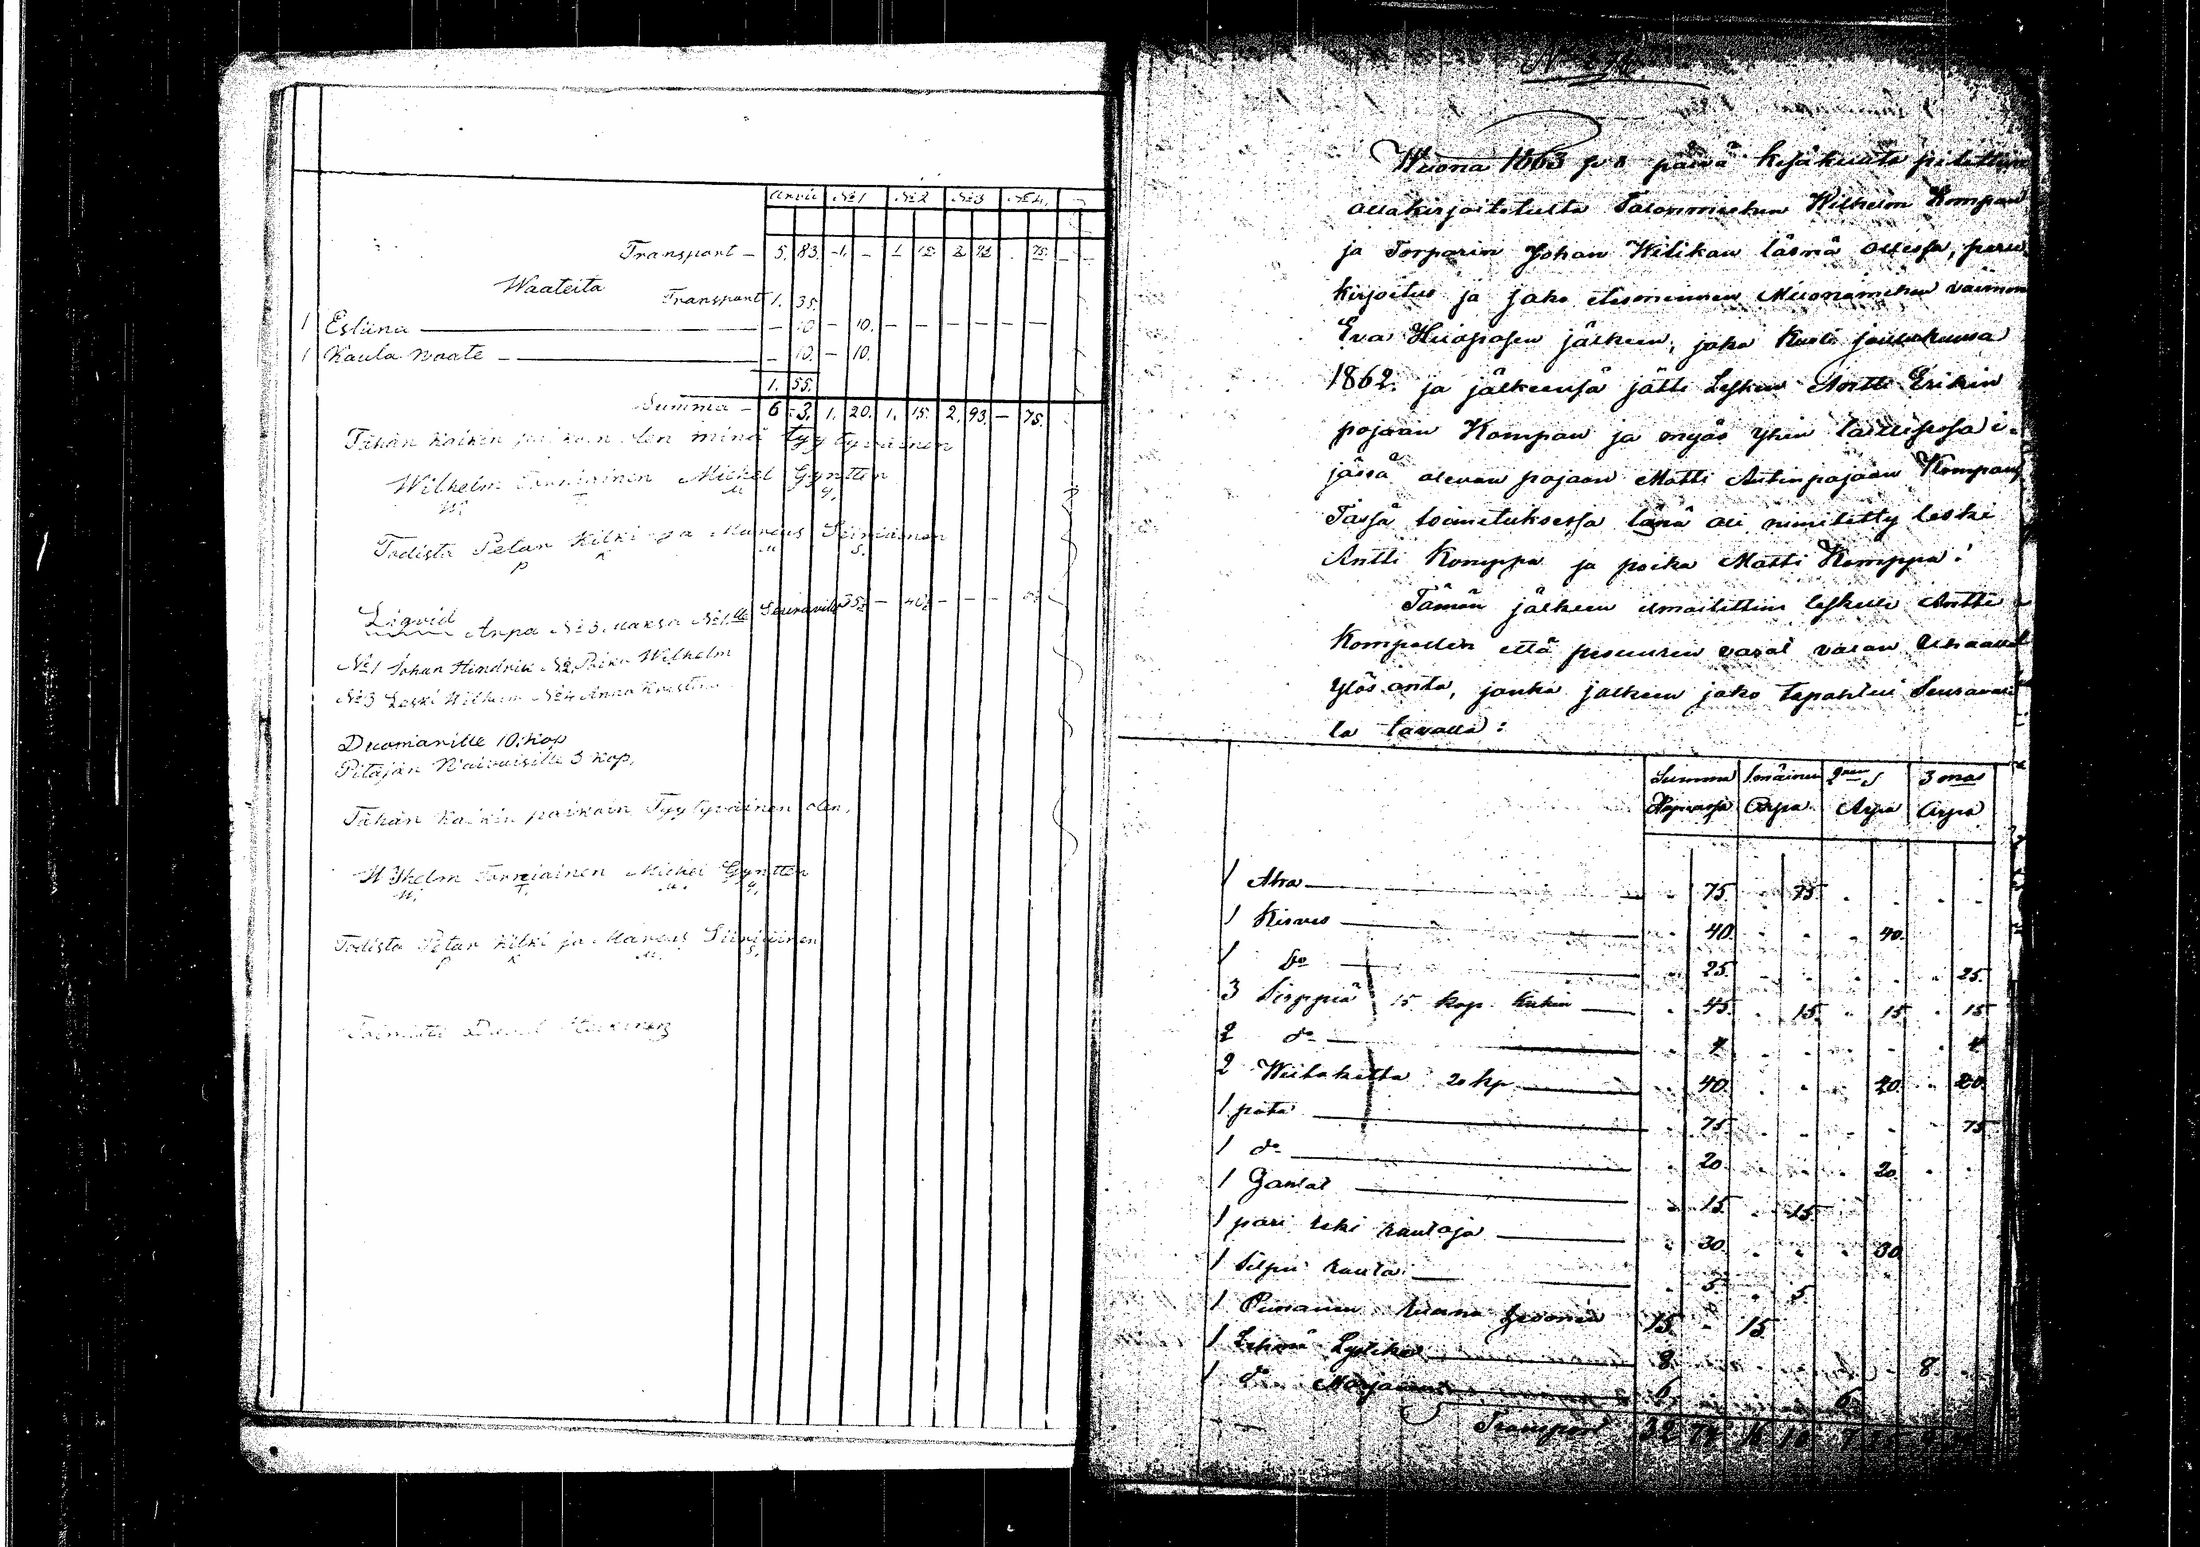 Arvio No 1 No 2 No 3 No 4.
Transport - 5. 83. -1. - 1. 15. 2. 93. . 75.
Waateita
Transport 1. 35.
1 Esliina - 10 - 10. - - - - - -
1 Kaula waate - - 10. - 10.
1. 55.
Summa - 6 -3. 1. 20. 1. 15. 2. 93. - 75.
Tähän kaikin puikoin olen minä tyytyväinen
Wilhelm Torniainen Michel Gyntten
W. T. M. G.
Todista Petar Kilki ja Marcus Siiriäinen
P K M S.
Liqvid Arpa No 3. maksa No 1.lle
No 1 Johan Hindrik No 2. Poika Wilhelm
No 3 Leski Wilhelm No 4 Anna Kristin
Duomarille 10. kop
Pitäjän Waivaisille 3 kop.
Tähän kaikin paikoin Tyytyväinen olen.
Wilhelm Torniainen Michel Gyntten
W. T. M. G.
Todista Petar Kilki ja Marcus Siiriäinen
P K M. S.
Toimitti
Wuona 1863 p 8 päivä kesäkuuta pidettiin
allakirjoitetulta Talonmiehen Wilhelm Kompan
ja Torparin Johan Wilikan läsnä ollessa, peru
kirjoitus ja jako etesmenneen Muonamiehen vaimon
Eva Huopasen jälkeen, joka kuoli joulukuusa
1862. ja jälkeensä jätti Lesken Antti Erikin
pojaan Kompan ja myös yhen laillisesa i-
jässä olevan pojaan Matti Antinpojaan Kompan
Tässä toimituksessa läsnä oli nimitetty leski
Antti Komppa ja poika Matti Komppa.
Tämän jälkeen ilmoitettiin leskelle Antti
Kompallen että pesuuren varat valan
Ylös anta, jonka jälkeen jako tapahtui Seuraavai
la tavalla:
Summa 1mäinen 2nen 3 mas
Hopeassa Arpa Arpa Arpa
1 Atra . 75. . 75. . . . .
1 Kirves . 40. . . . 40.
1 do . 25. . . . . . 25.
3 Sirppiä 15 kop. kukin . 45. . 15. . 15 . 15
2 do . 4. . . . . . 4
2 Wiitaketta 20 kp . 40. . . . 20. . 20.
1 pata . 75. . . . . . 75
1 do . 20. . . . 20. . .
1 . 15. . 15.
1 pari reki rautoja . 30. . . . 30.
1 Silpu rauta . 5. . 5.
1 Punanen ruuna 15. - 15.
1 Lehmä 8. 8.
1 do 6. 6.
Transport 32 74